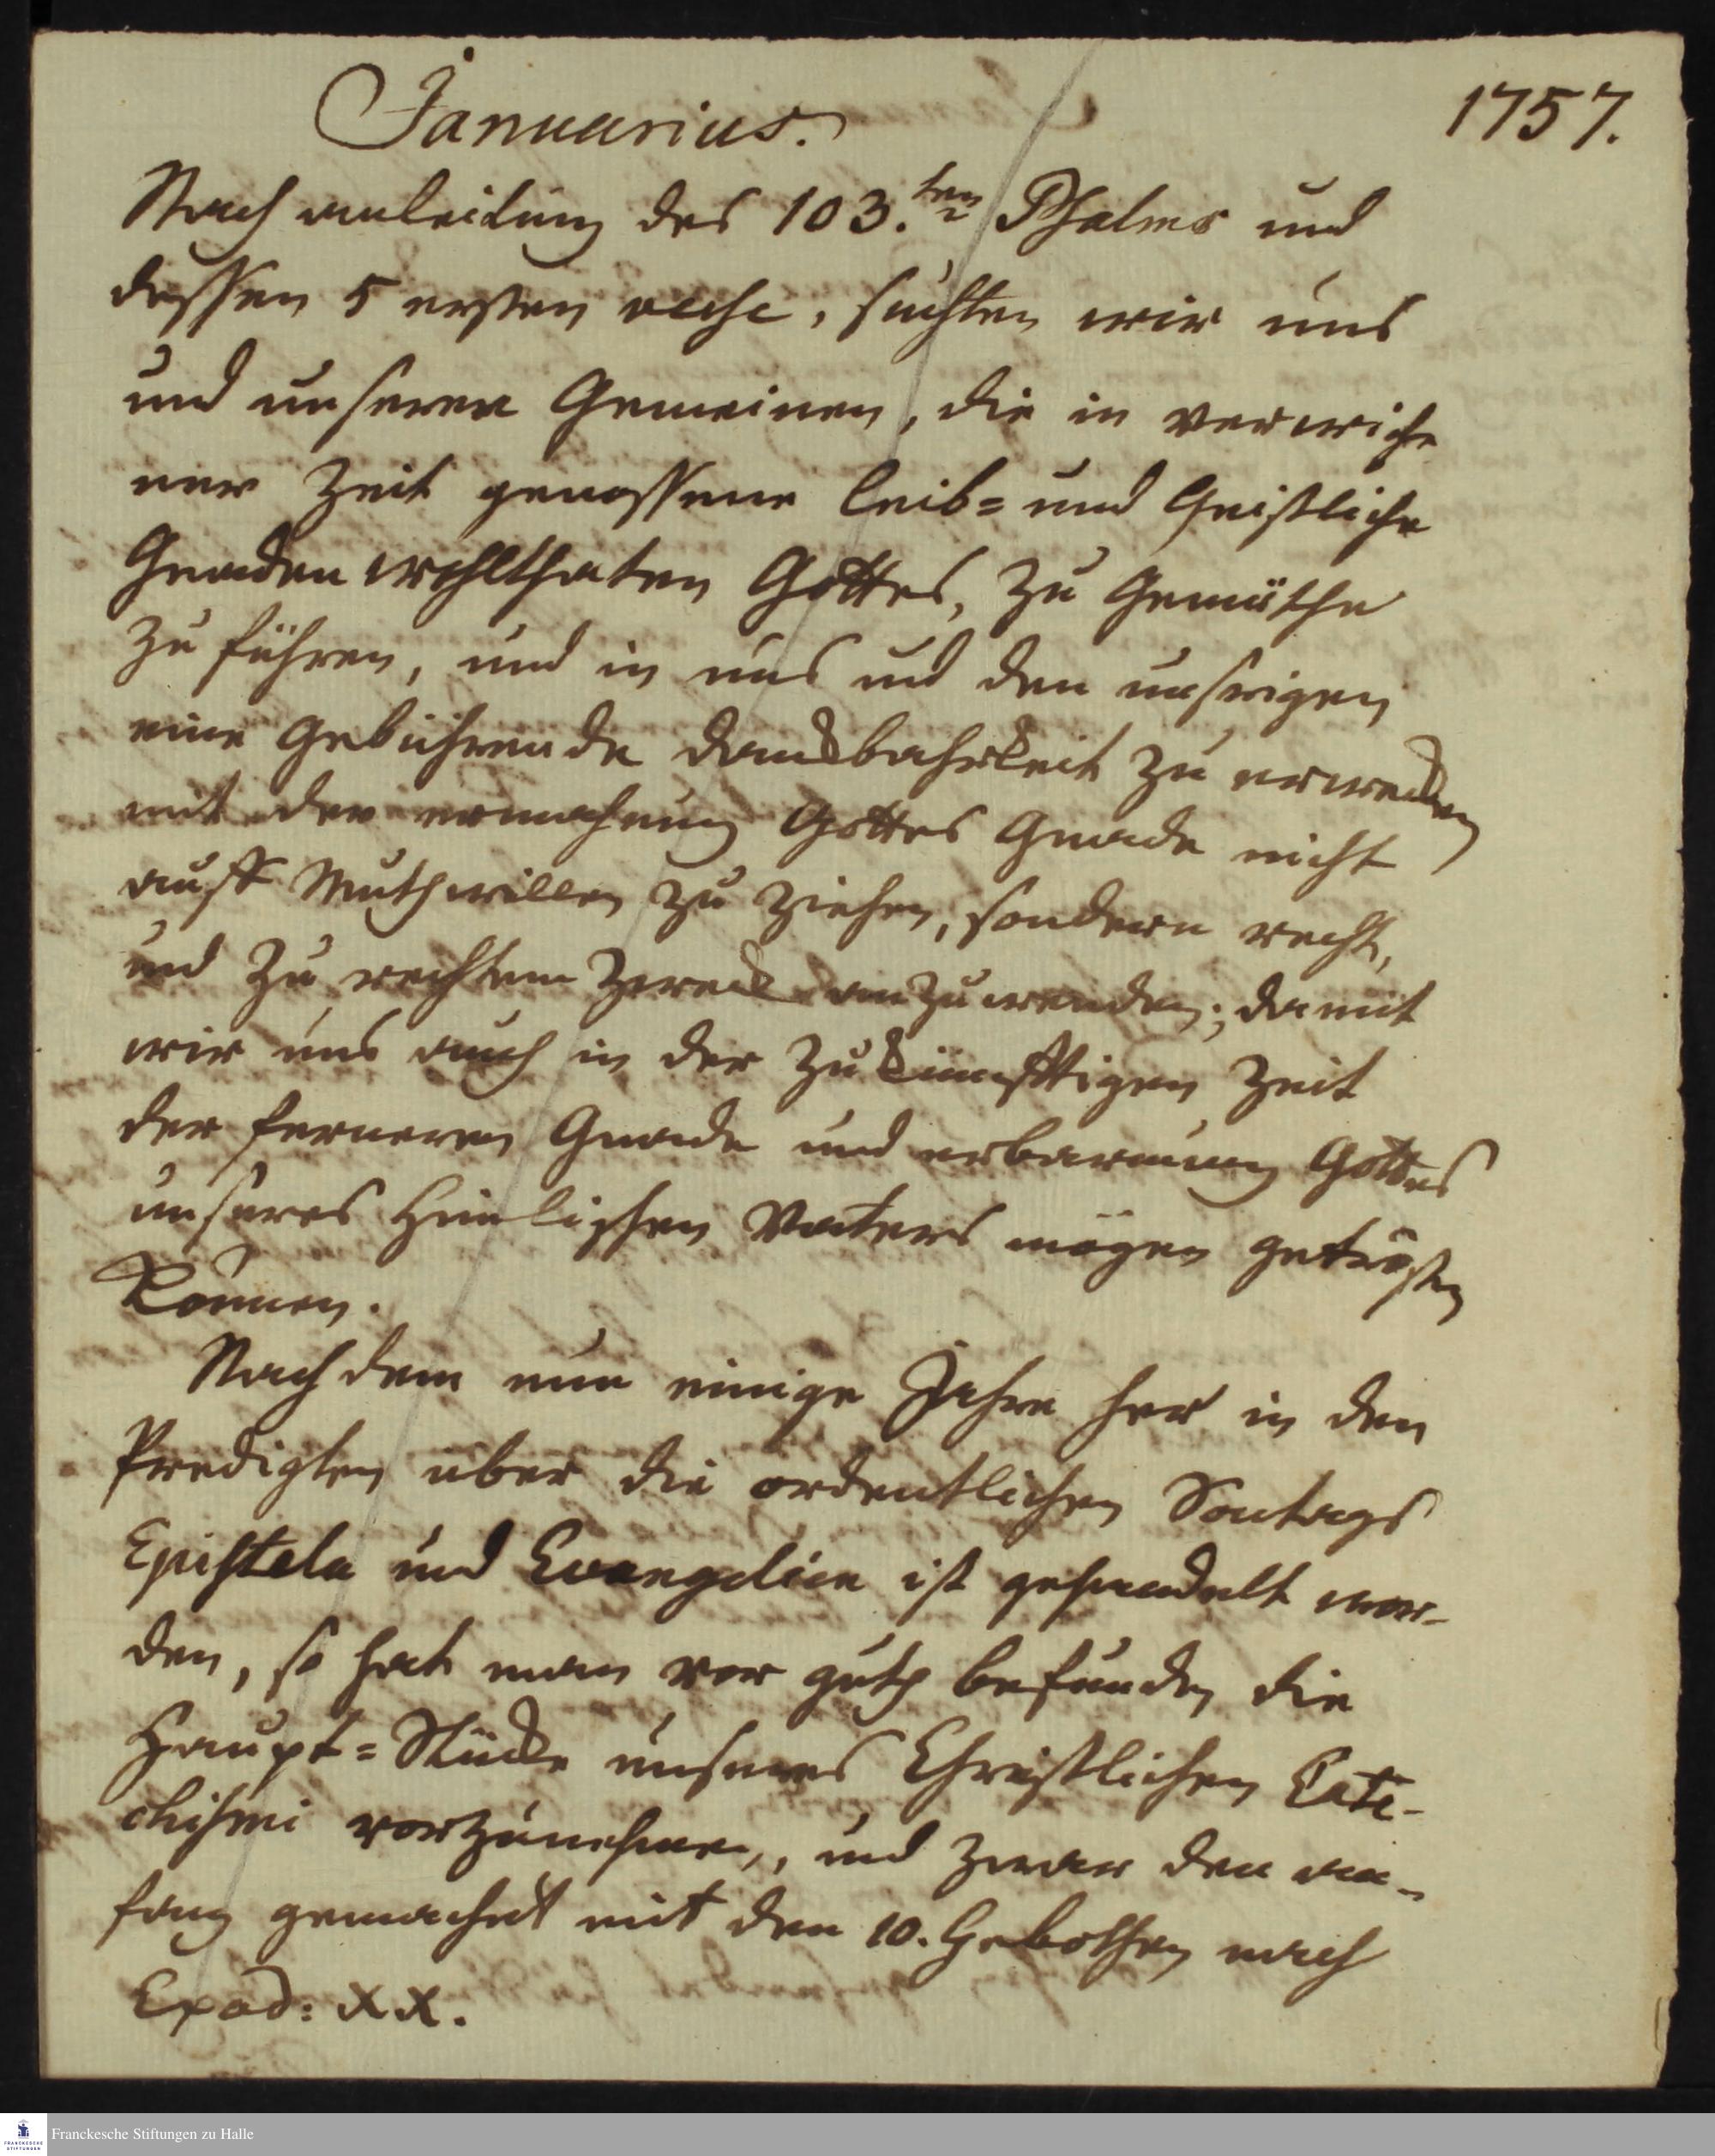 Januarius.
1757.
Nach anleitung des 103.ten Psalms und
dessen 5 ersten verse, suchten wir uns
und unseren Gemeinen, die in verwiche
ner Zeit genossene leib= und Geistliche
Gnaden wohlthaten Gottes, zu Gemüthe
zu führen, und in uns und den unsrigen
eine Gebührende danckbahrkeit zu erwecken
mit der ermahnung Gottes Gnade nicht
auff Muthwillen zu ziehen, sondern recht,
und zu rechtem Zweck anzuwenden; damit
wir uns auch in der zukünfftigen Zeit
der ferneren Gnade und erbarmung Gottes
unseres Himlischen Vaters mögen getrösten
können.
Nachdem nun einige Jahre her in den
Predigten über die ordentlichen Sontags
Episteln und Evangelien ist gehandelt wor-
den, so hat man vor guth befunden die
Haupt=Stücke unseres Christlichen Cate-
chismi vorzunehmen, und zwar den an-
fang gemacht mit den 10. Gebothen nach
Exod: XX.
Franckesche Stiftungen zu Halle
FRANCKESCHE
STIFTUNGEN